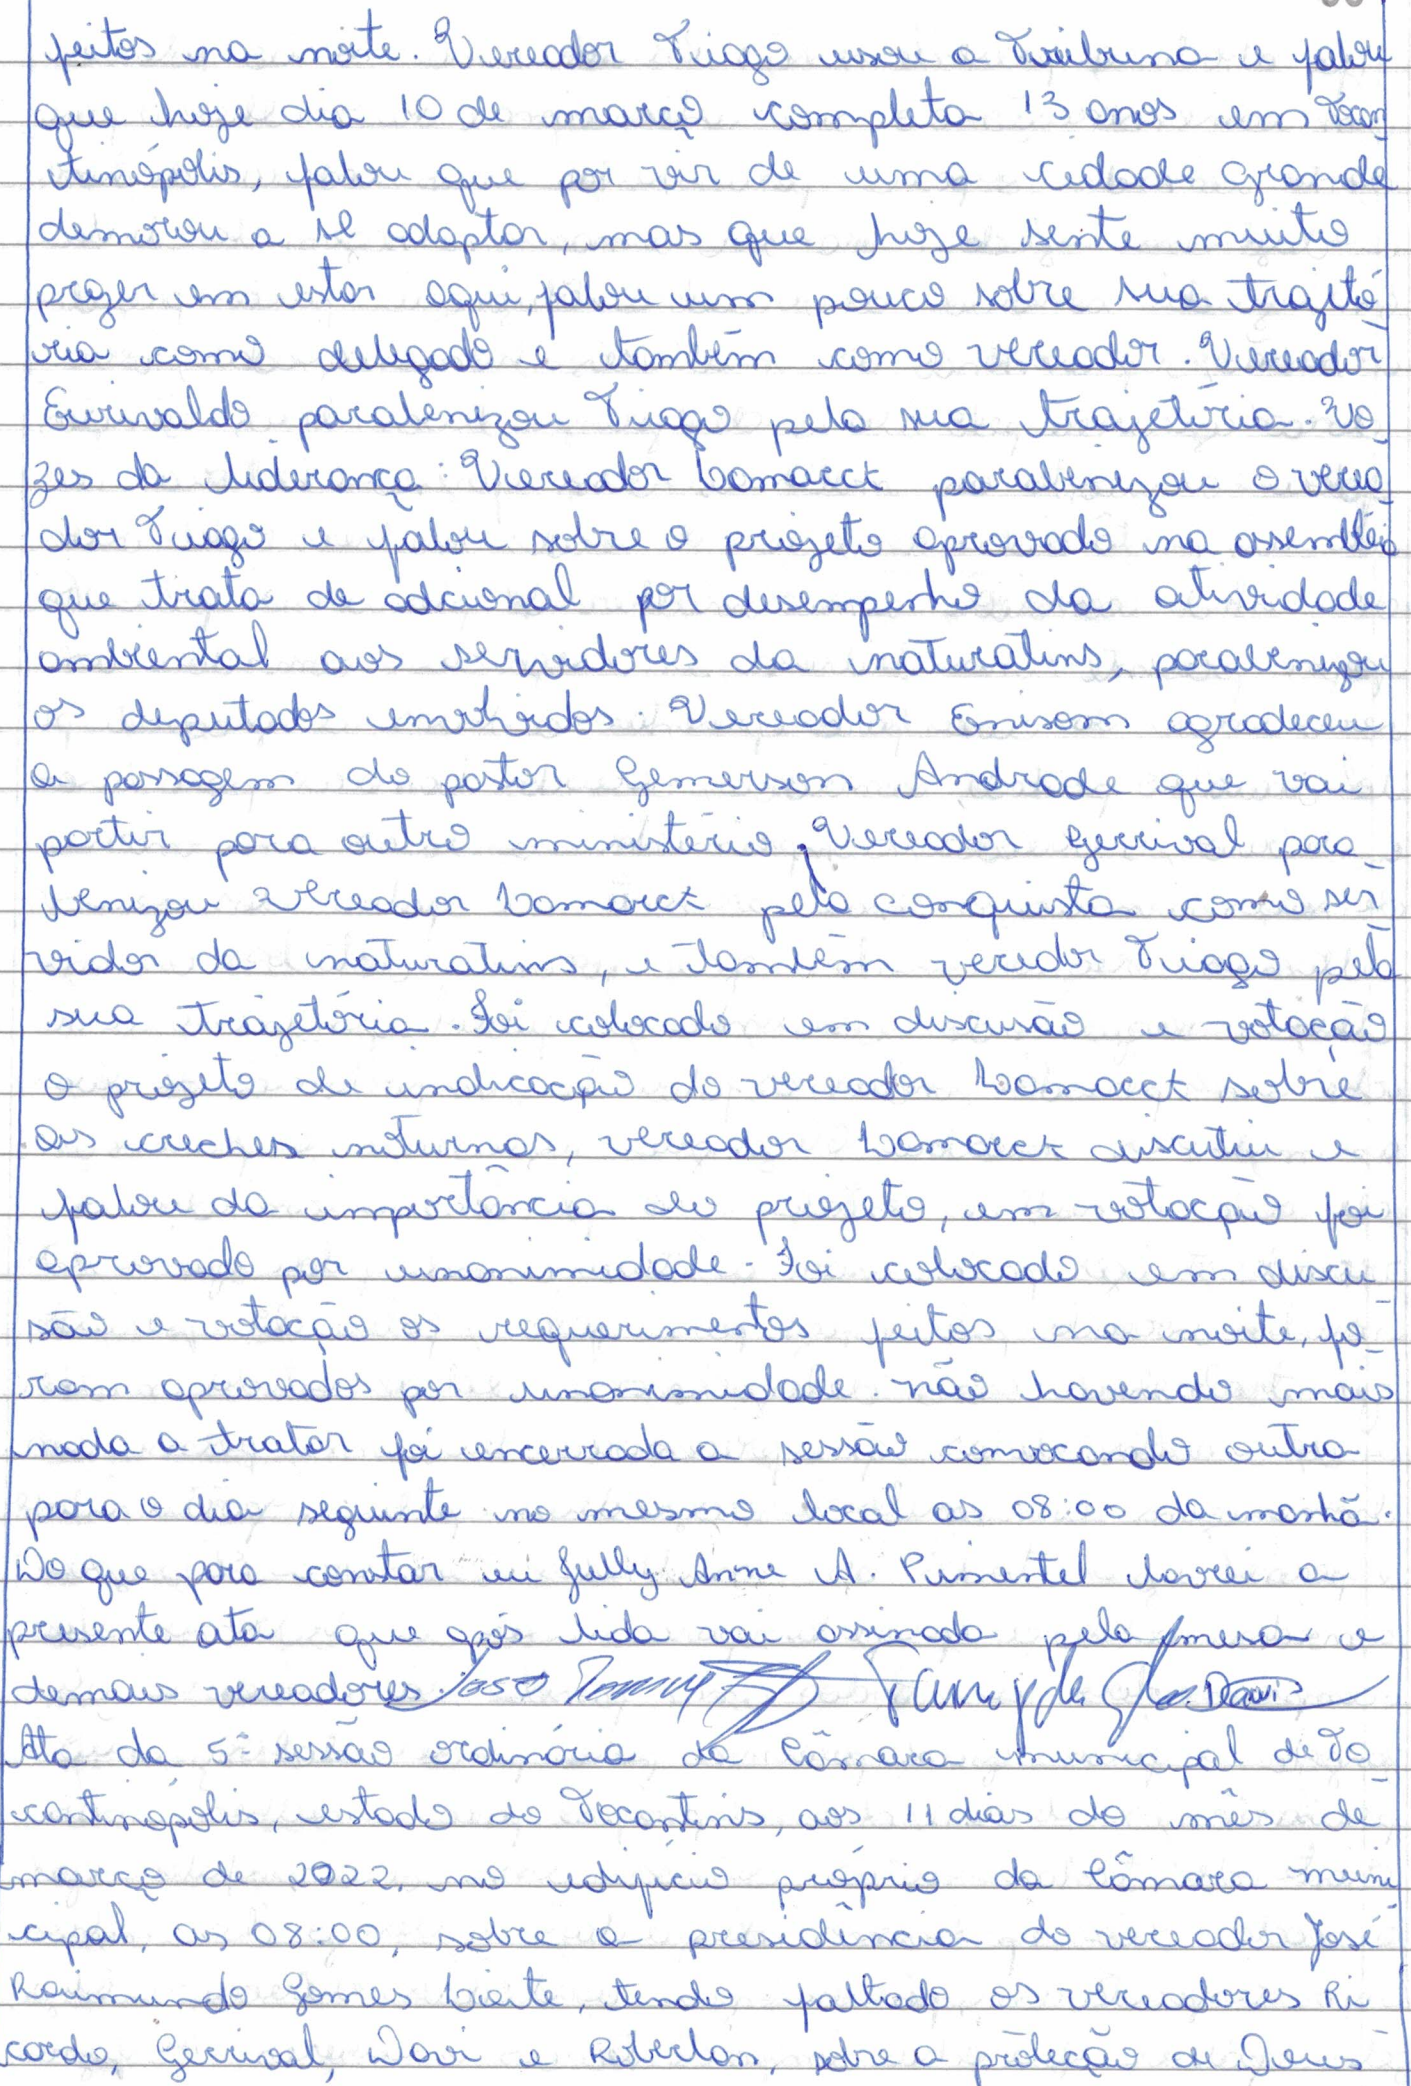 feitos na noite. Vereador Tiago usou a Tribuna e falou
que hoje dia 10 de março completa 13 anos em Tocan
tinópolis, falou que por vir de uma cidade grande
demorou a se adaptar, mas que hoje sente muito
prazer em estar aqui, falou um pouco sobre sua trajetó
ria como delegado e também como vereador. Vereador
Eurivaldo parabenizou Tiago pela sua trajetória. Vo
zes da liderança: Vereador Lamarck parabenizou o verea
dor Tiago e falou sobre o projeto aprovado na assembléia
que trata de adcional por desempenho da atividade
ambiental aos servidores da naturatins, parabenizou
os deputados envolvidos. Vereador Enisom agradeceu
a passagem do pastor Gemerson Andrade que vai
partir para outro ministério. Vereador Gerrival para
benizou vereador Lamarck pela conquista como ser
vidor da naturatins, e também veredor Tiago pela
sua trajetória. Foi colocado em discusão e votação
o projeto de indicação do vereador Lamarck sobre
as creches noturnas, vereador Lamarck discutiu e
falou da importância do projeto, em votação foi
aprovado por unanimidade. Foi colocado em discu
são e votação os requerimentos feitos na noite, fo
ram aprovados por unanimidade. não havendo mais
nada a tratar foi encerrada a sessão convocando outra
para o dia seguinte no mesmo local as 08:00 da manhã.
Do que para constar eu Jully Anne A. Pimentel lavrei a
presente ata que após lida vai assinada pela mesa e
demais vereadores.
Ata da 5ª sessão ordinária da Câmara municipal de To
cantinópolis, estado do Tocantins, aos 11 dias do mês de
março de 2022, no edifício próprio da Câmara muni
cipal, as 08:00, sobre a presidência do vereador José
Raimundo Gomes Leite, tendo faltado os vereadores Ri
cardo, Gerrival, Davi e Roberlan, sobre a proteção de Deus